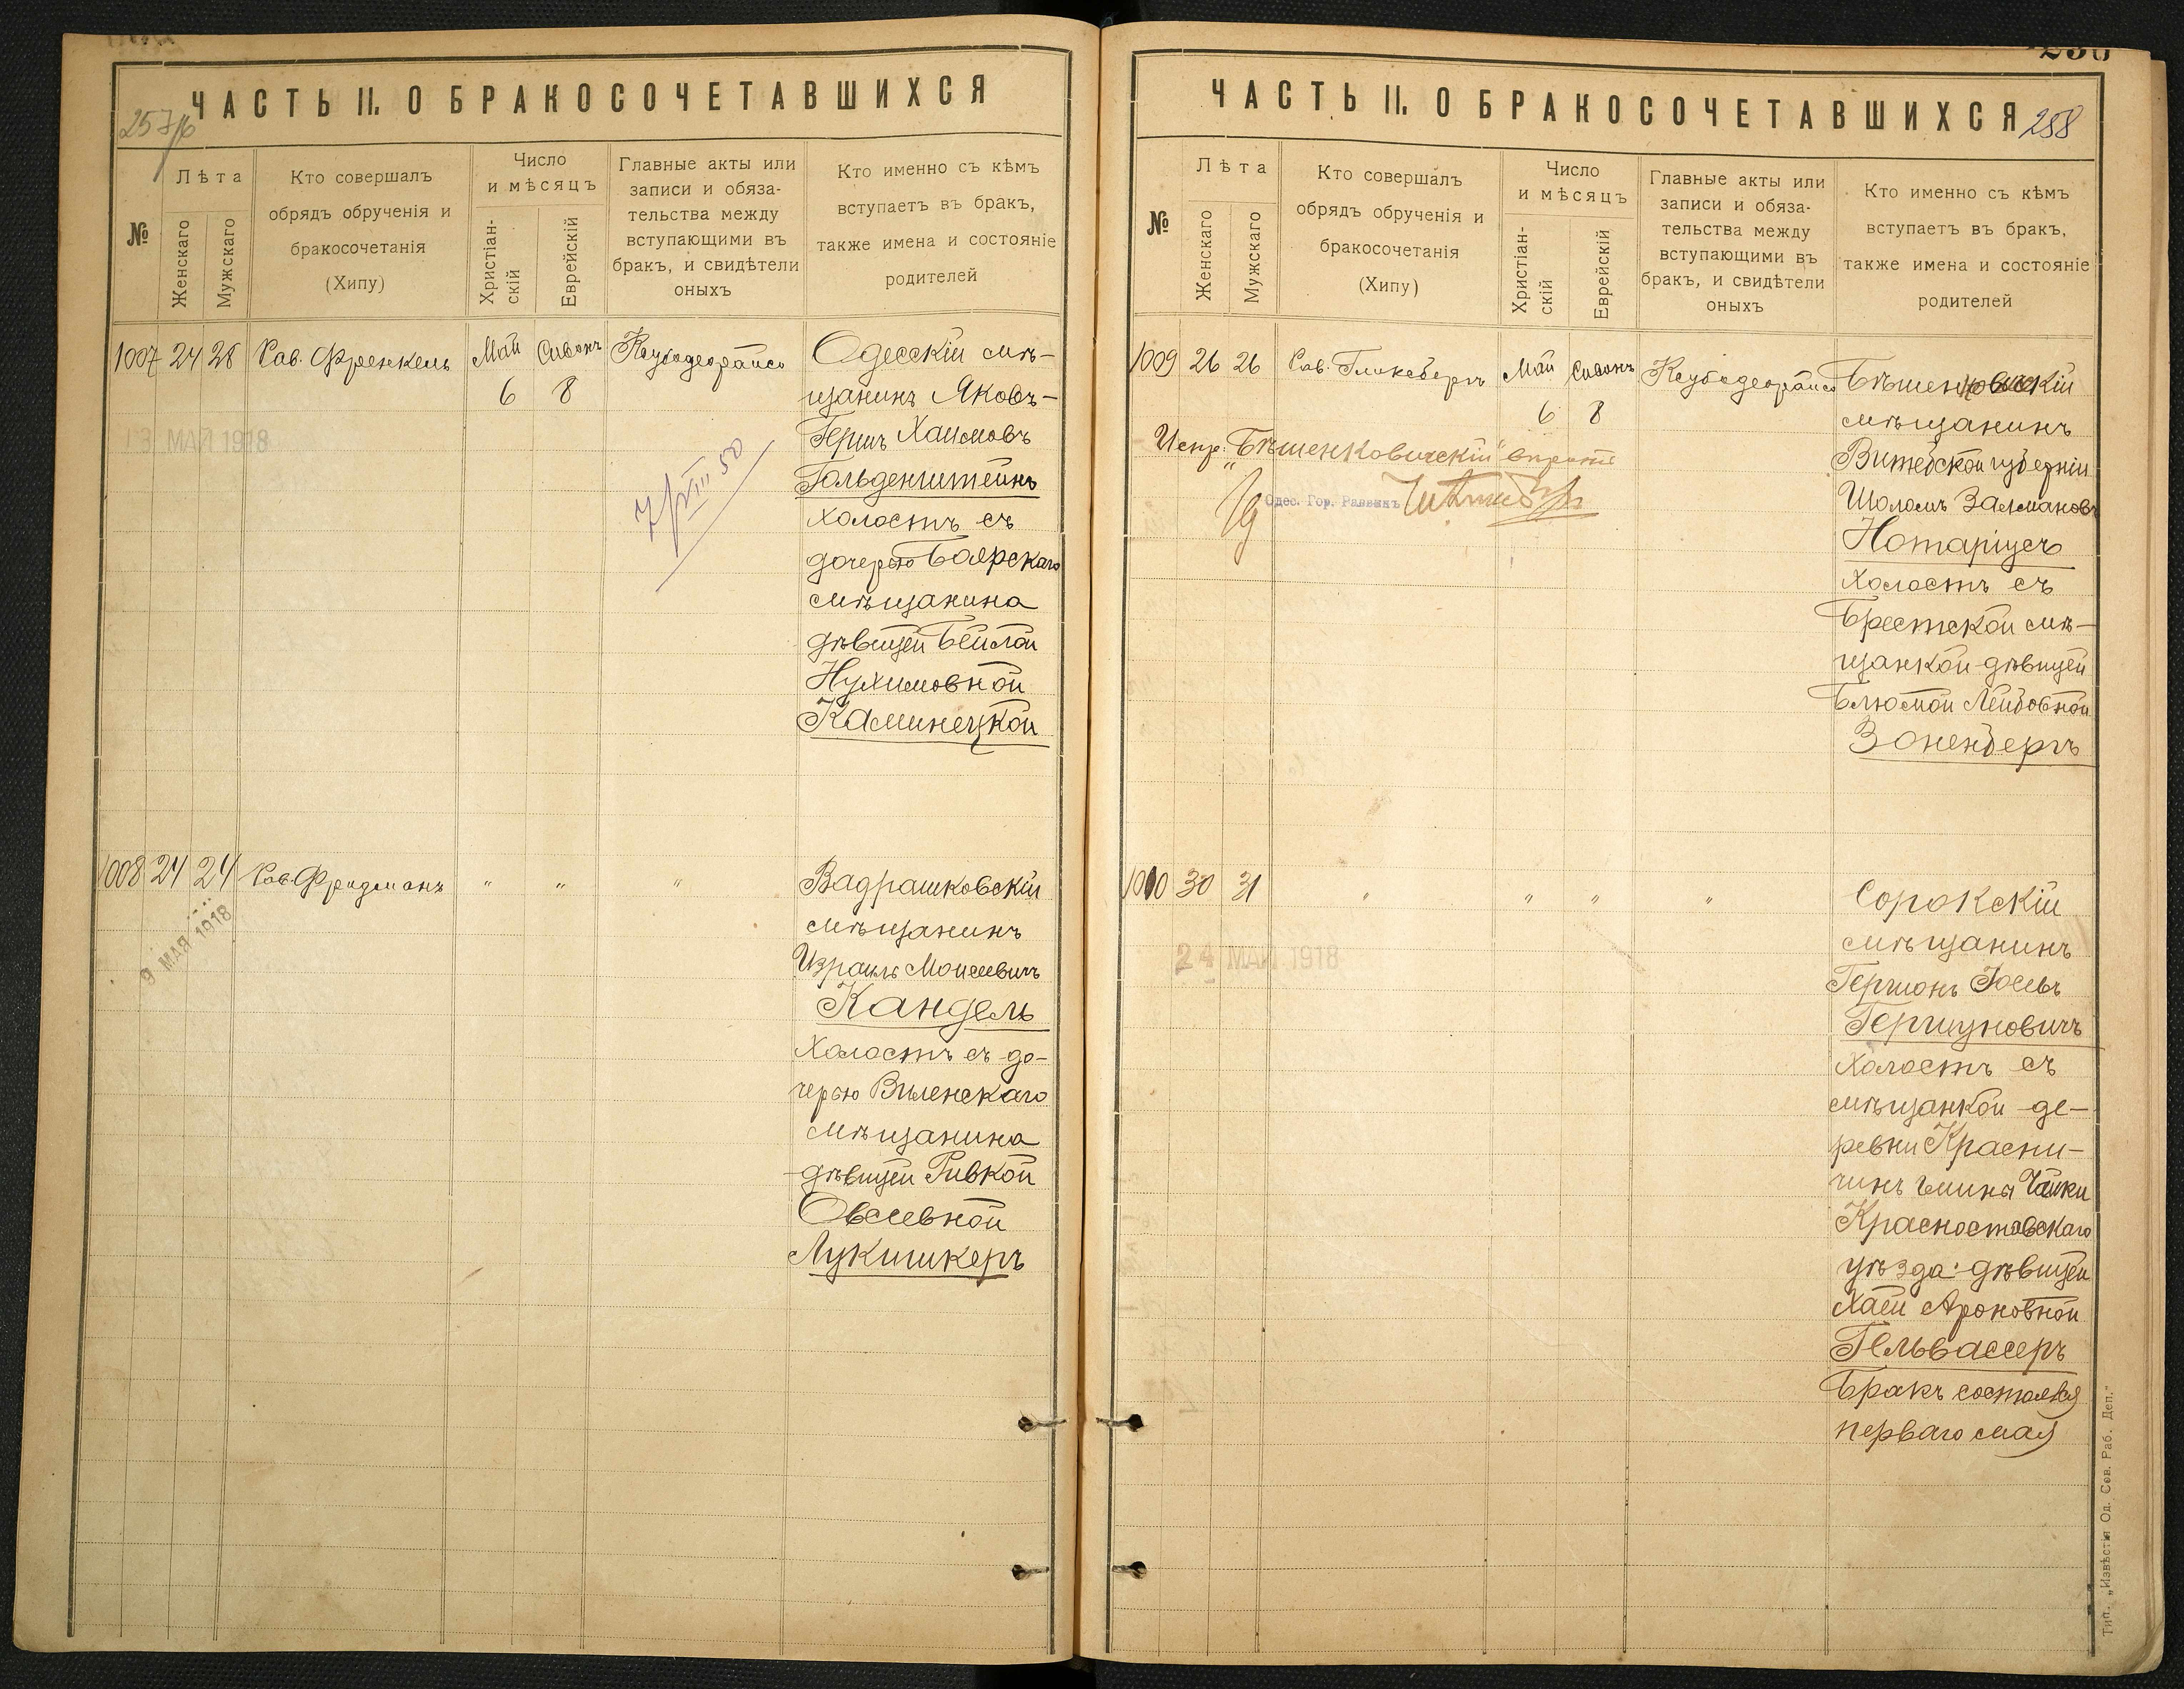 ЧАСТЬ II. О БРАКОСОЧЕТАВШИХСЯ
№
Лѣта
Женскаго
Мужскаго
Кто совершалъ
обрядъ обрученія и
бракосочетанія
(Хипу)
Число
и мѣсяцъ
Христіан-
скій
Еврейскій
Главные акты или
записи и обяза-
тельства между
вступающими въ
бракъ, и свидѣтели
оныхъ
Кто именно съ кѣмъ
вступаетъ въ бракъ,
также имена и состояніе
родителей
1007 24 28 Рав. Френкель Май Сивонъ
6 8
13 МАЙ 1918
7/VIII 50
Одесскій мѣ-
щанинъ Яковъ-
Гершъ Хаимовъ
Гольденштейнъ
холостъ съ
дочерью Боярскаго
мѣщанина
дѣвицей Бейлой
Нухимовной
Каминецкой
1008 24 24 Рав. Фридманъ " " "
9 МАЯ 1918
Вадрашковскій
мѣщанинъ
Израиль Моисеевичъ
Кандель
холостъ съ до-
черью Виленскаго
мѣщанина
дѣвицей Ривкой
Овсеевной
Лукишкеръ
258
ЧАСТЬ II. О БРАКОСОЧЕТАВШИХСЯ
№
Лѣта
Женскаго
Мужскаго
Кто совершалъ
обрядъ обрученія и
бракосочетанія
(Хипу)
Число
и мѣсяцъ
Христіан-
скій
Еврейскій
Главные акты или
записи и обяза-
тельства между
вступающими въ
бракъ, и свидѣтели
оныхъ
Кто именно съ кѣмъ
вступаетъ въ бракъ,
также имена и состояніе
родителей
1009 26 26 Рав. Гликсбергъ Май Сивонъ
6 8
Испр. "Бѣшенковичскій" вѣрить
Одес. Гор. Раввинъ
Бѣшенковичскій
мѣщанинъ
Витебской губерніи
Шоломъ Залмановъ
Нотаріусъ
холостъ съ
Брестской мѣ-
щанкой дѣвицей
Блюмой Лейбовной
Зоненбергъ
1010 30 31 " " " "
24 МАЙ 1918
Сорокскій
мѣщанинъ
Гершонъ Іосевъ
Гершуновичъ
холостъ съ
мѣщанкой де-
ревни Красни-
чинъ гмины Чайки
Красноставскаго
уѣзда дѣвицей
Хаей Ароновной
Гельвассеръ
Бракъ состоялся
перваго мая
Тип. „Извѣстія Од. Сов. Раб. Деп."